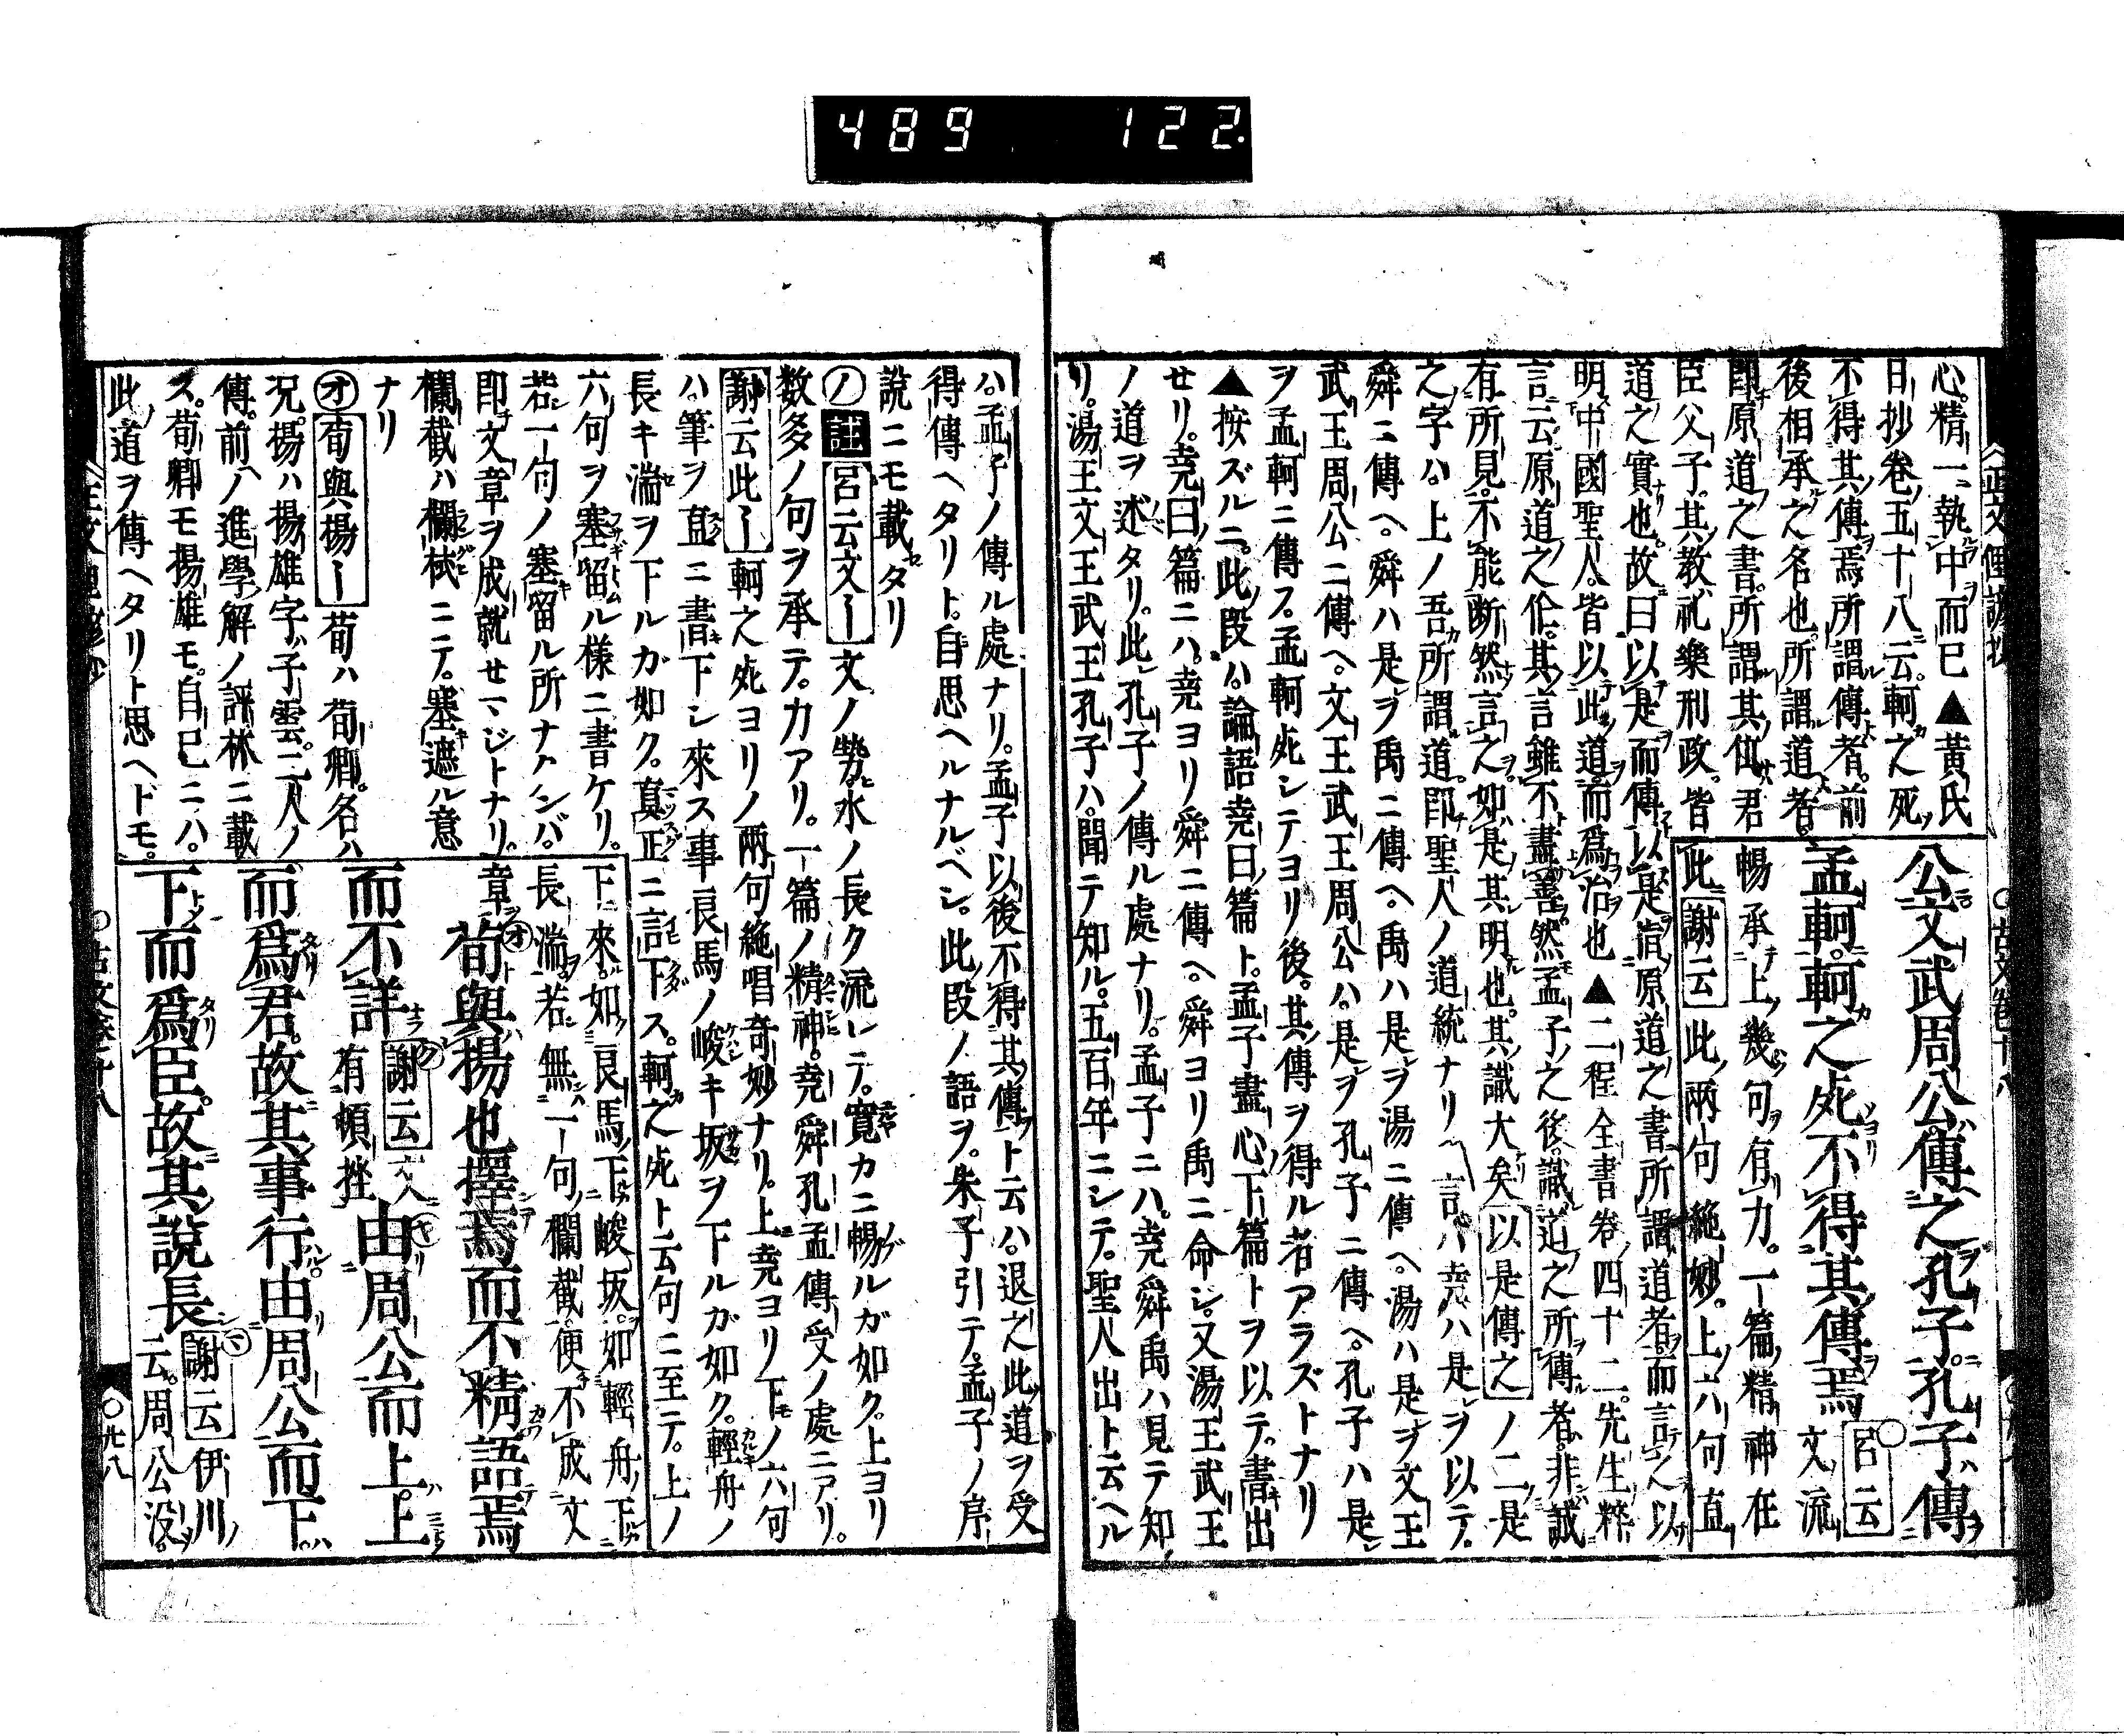 489 122
心精一執中而已▲黃氏
日抄卷五十八云軻之死
不得其傳焉所謂傳者前
後相承之名也所謂道者
即原道之書所謂其位君
臣父子其教礼樂刑政皆
公文武周公傳之孔子孔子傳
孟軻軻之死不得其傳焉
呂云文流
暢承上幾句有力一篇精神在
此謝云此兩句絶妙上六句直
道之實也故曰以是而傳以是指原道之書所謂道者而言之以
明中國聖人皆以此道而為治也▲二程全書卷四十二先生粹
言云原道之作其言雖不盡善然孟子之後識道之所傳者非誠
有所見不能断然言之如是其明也其識大矣以是傳之ノ二是
之字ハ上ノ吾所謂道即聖人ノ道統ナリ言ハ尭ハ是ヲ以テ
舜ニ傳ヘ舜ハ是ヲ禹ニ傳ヘ禹ハ是ヲ湯ニ傳ヘ湯ハ是ヲ文王
武王周公ニ傳ヘ文王武王周公ハ是ヲ孔子ニ傳ヘ孔子ハ是
ヲ孟軻ニ傳フ孟軻死シテヨリ後其傳ヲ得ル者アラズトナリ
▲按ズルニ此段ハ論語尭曰篇ト孟子盡心下篇トヲ以テ書出
せリ尭曰篇ニハ尭ヨリ舜ニ傳ヘ舜ヨリ禹ニ命シ又湯王武王
ノ道ヲ述タリ此孔子ノ傳ル處ナリ孟子ニハ尭舜禹ハ見テ知
リ湯王文王武王孔子ハ聞テ知ル五百年ニシテ聖人出ト云ヘル
ハ孟子ノ傳ル處ナリ孟子以後不得其傳ト云ハ退之此道ヲ受
得傳ヘタリト自思ヘルナルベシ此段ノ語ヲ朱子引テ孟子ノ序
説ニモ載タリ
ノ註呂云文ー文ノ勢水ノ長ク流レテ寛カニ暢ルガ如ク上ヨリ
数多ノ句ヲ承テ力アリ一篇ノ精神尭舜孔孟傳受ノ處ニアリ
謝云此ー軻之死ヨリノ兩句絶唱奇妙ナリ上尭ヨリ下ノ六句
ハ筆ヲ直ニ書下シ來ス事良馬ノ峻キ坂ヲ下ルガ如ク輕舟ノ
長キ湍ヲ下ルガ如ク真正ニ言下ス軻之死ト云句ニ至テ上ノ
六句ヲ塞留ル様ニ書ケリ
若一句ノ塞留ル所ナクンバ
即文章ヲ成就せマジトナリ
欄截ハ欄杙ニテ塞遮ル意
ナリ
オ荀與揚ー荀ハ荀卿名ハ
況揚ハ揚雄字子雲二人ノ
傳前ノ進學解ノ評林ニ載
ス荀卿モ揚雄モ自己ニハ
此道ヲ傳ヘタリト思ヘドモ
下來如良馬下峻坂如輕舟下
長湍若無一句欄截便不成文
章オ荀與揚也擇焉而不精語焉
而不詳謝云文有頓挫由周公而上上
而為君故其事行由周公而下
下而為臣故其説長謝云伊川
云周公没